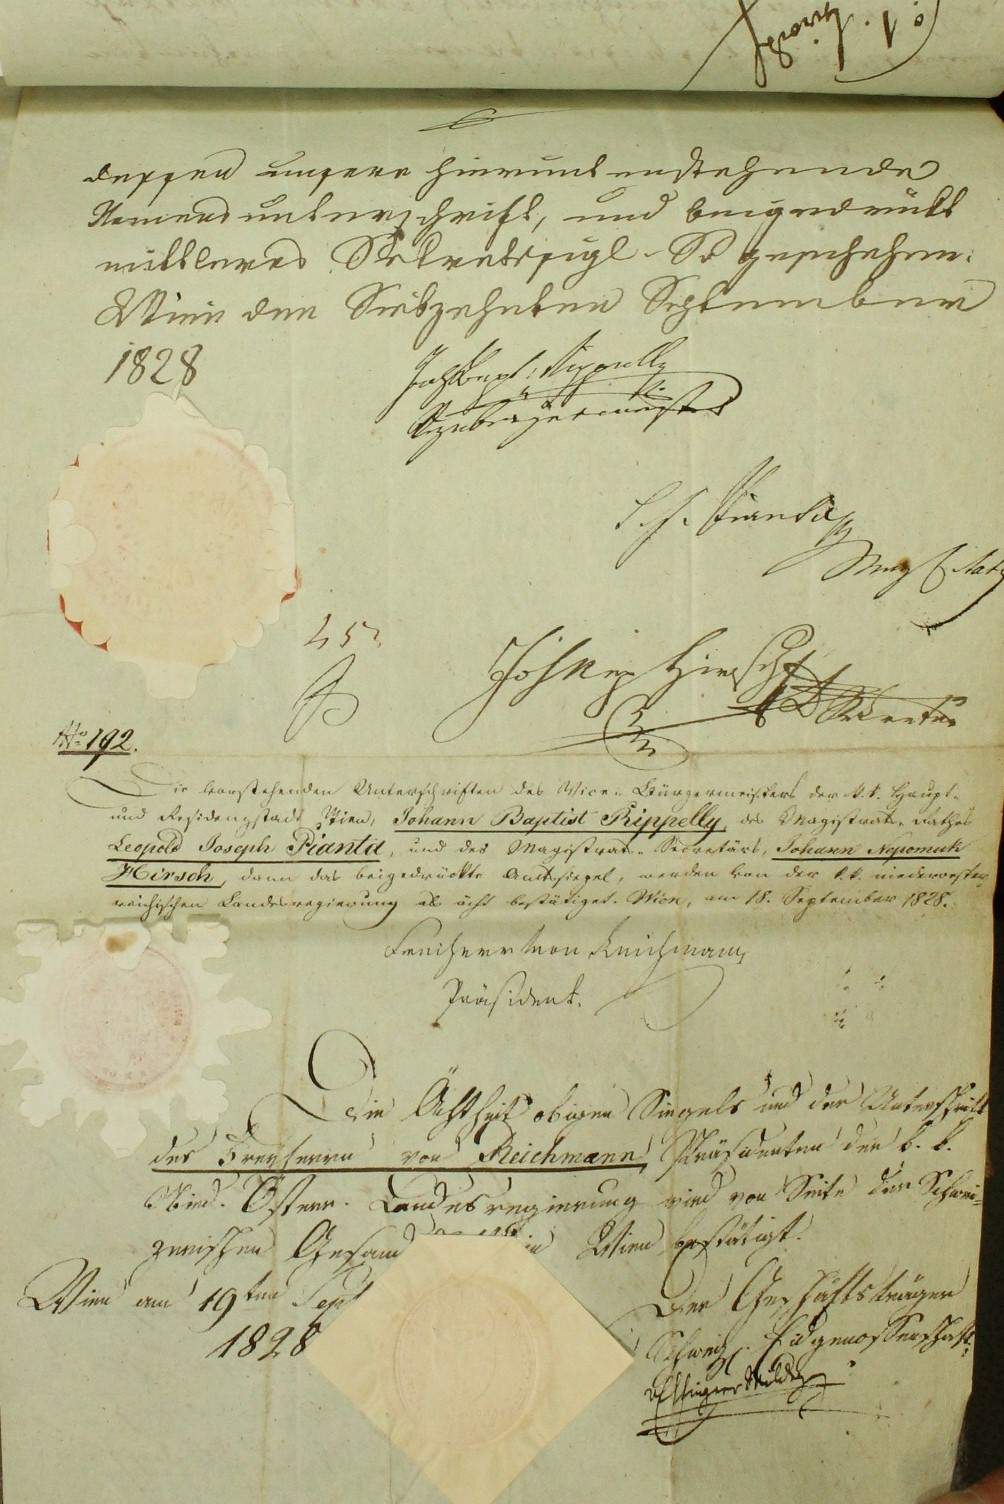 dessen unsere hierunt enstehende
Namens unterschrift, und beigedrückt
mittleres Sekretsigl. So geschehen.
Wien den Siebzehnten September
1828
Joh Bapt:
Vizebürgermeister
L. J. Pianta
Mag Rath
45
Joh Nep Hirsch
Sekretär
No 192.
Die vorstehenden Unterschriften des Vice-Bürgermeisters der k. k. Haupt-
und Residenzstadt Wien, Johann Baptist Rippelly, des Magistrats-Rathes
Leopold Joseph Pianta, und des Magistrats-Secretärs, Johann Nepomuk
Hirsch, dann das beigedrückte Amtssiegel, werden von der k. k. niederoester-
reichischen Landesregierung als ächt bestätiget. Wien, am 18. September 1828.
Freiherr von Reichmann,
Präsident.
Die Ächtheit obigen Siegels und der Unterschrift
des Freyherrn von Reichmann, Präsidenten der k. k.
Nied. Österr. Landesregierung wird von Seite der Schwei-
zerischen Gesand in Wien bestätigt.
Wien am 19ten Sept
1828
Der Geschäftsträger
Schweiz. Eidgenossenschaft:
Effinger Wildegg